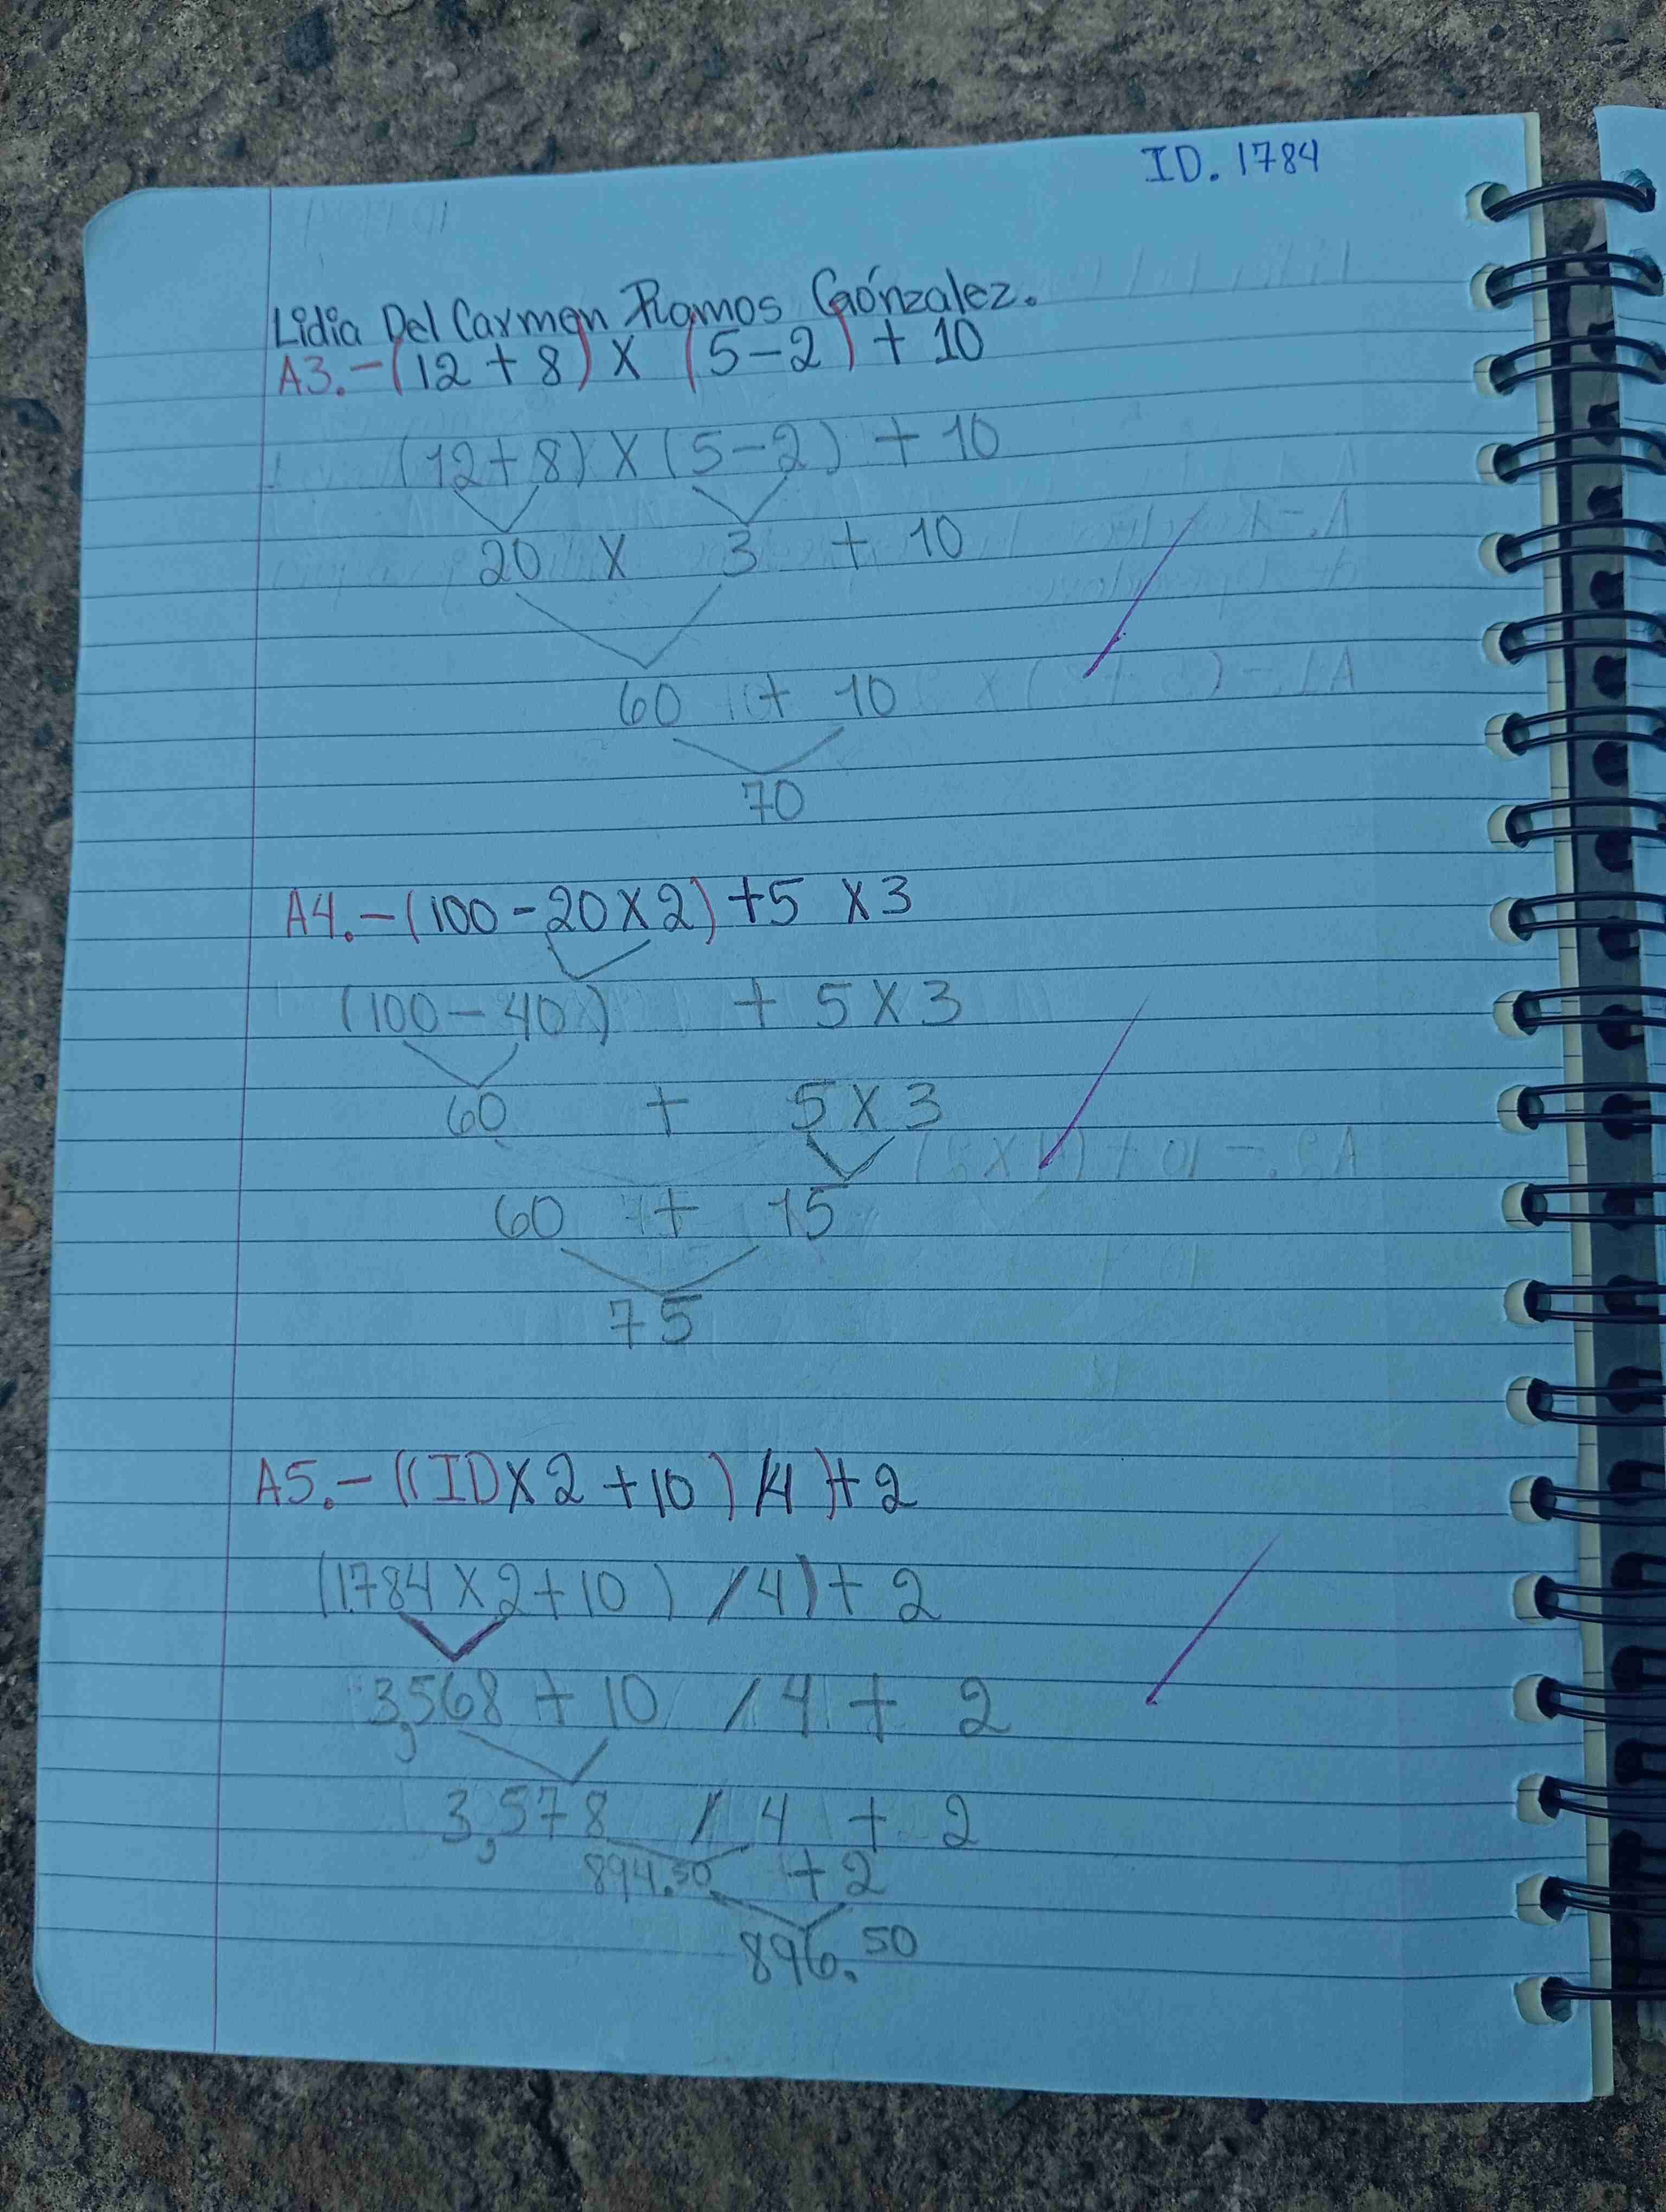 ID. 1784
Lidia Del Carmen Ramos Gónzalez.
A3.-(12 + 8) X (5-2) + 10
(12+8) X (5-2) + 10
20 X 3 + 10
60 + 10
70
A4.-(100-20X2)+5 X3
(100-40) + 5X3
60 + 5X3
60 + 15
75
A5.-((IDX2+10)/4)+2
(1784X2+10) /4)+2
3,568+10 /4+ 2
3,578 /4 + 2
894.50 +2
896.50